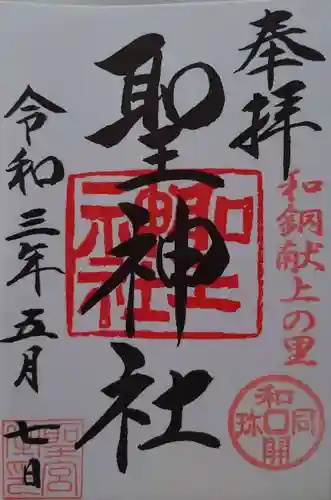 奉拝
和銅献上の里
聖神社
令和三年五月七日
聖神社
和同開珎